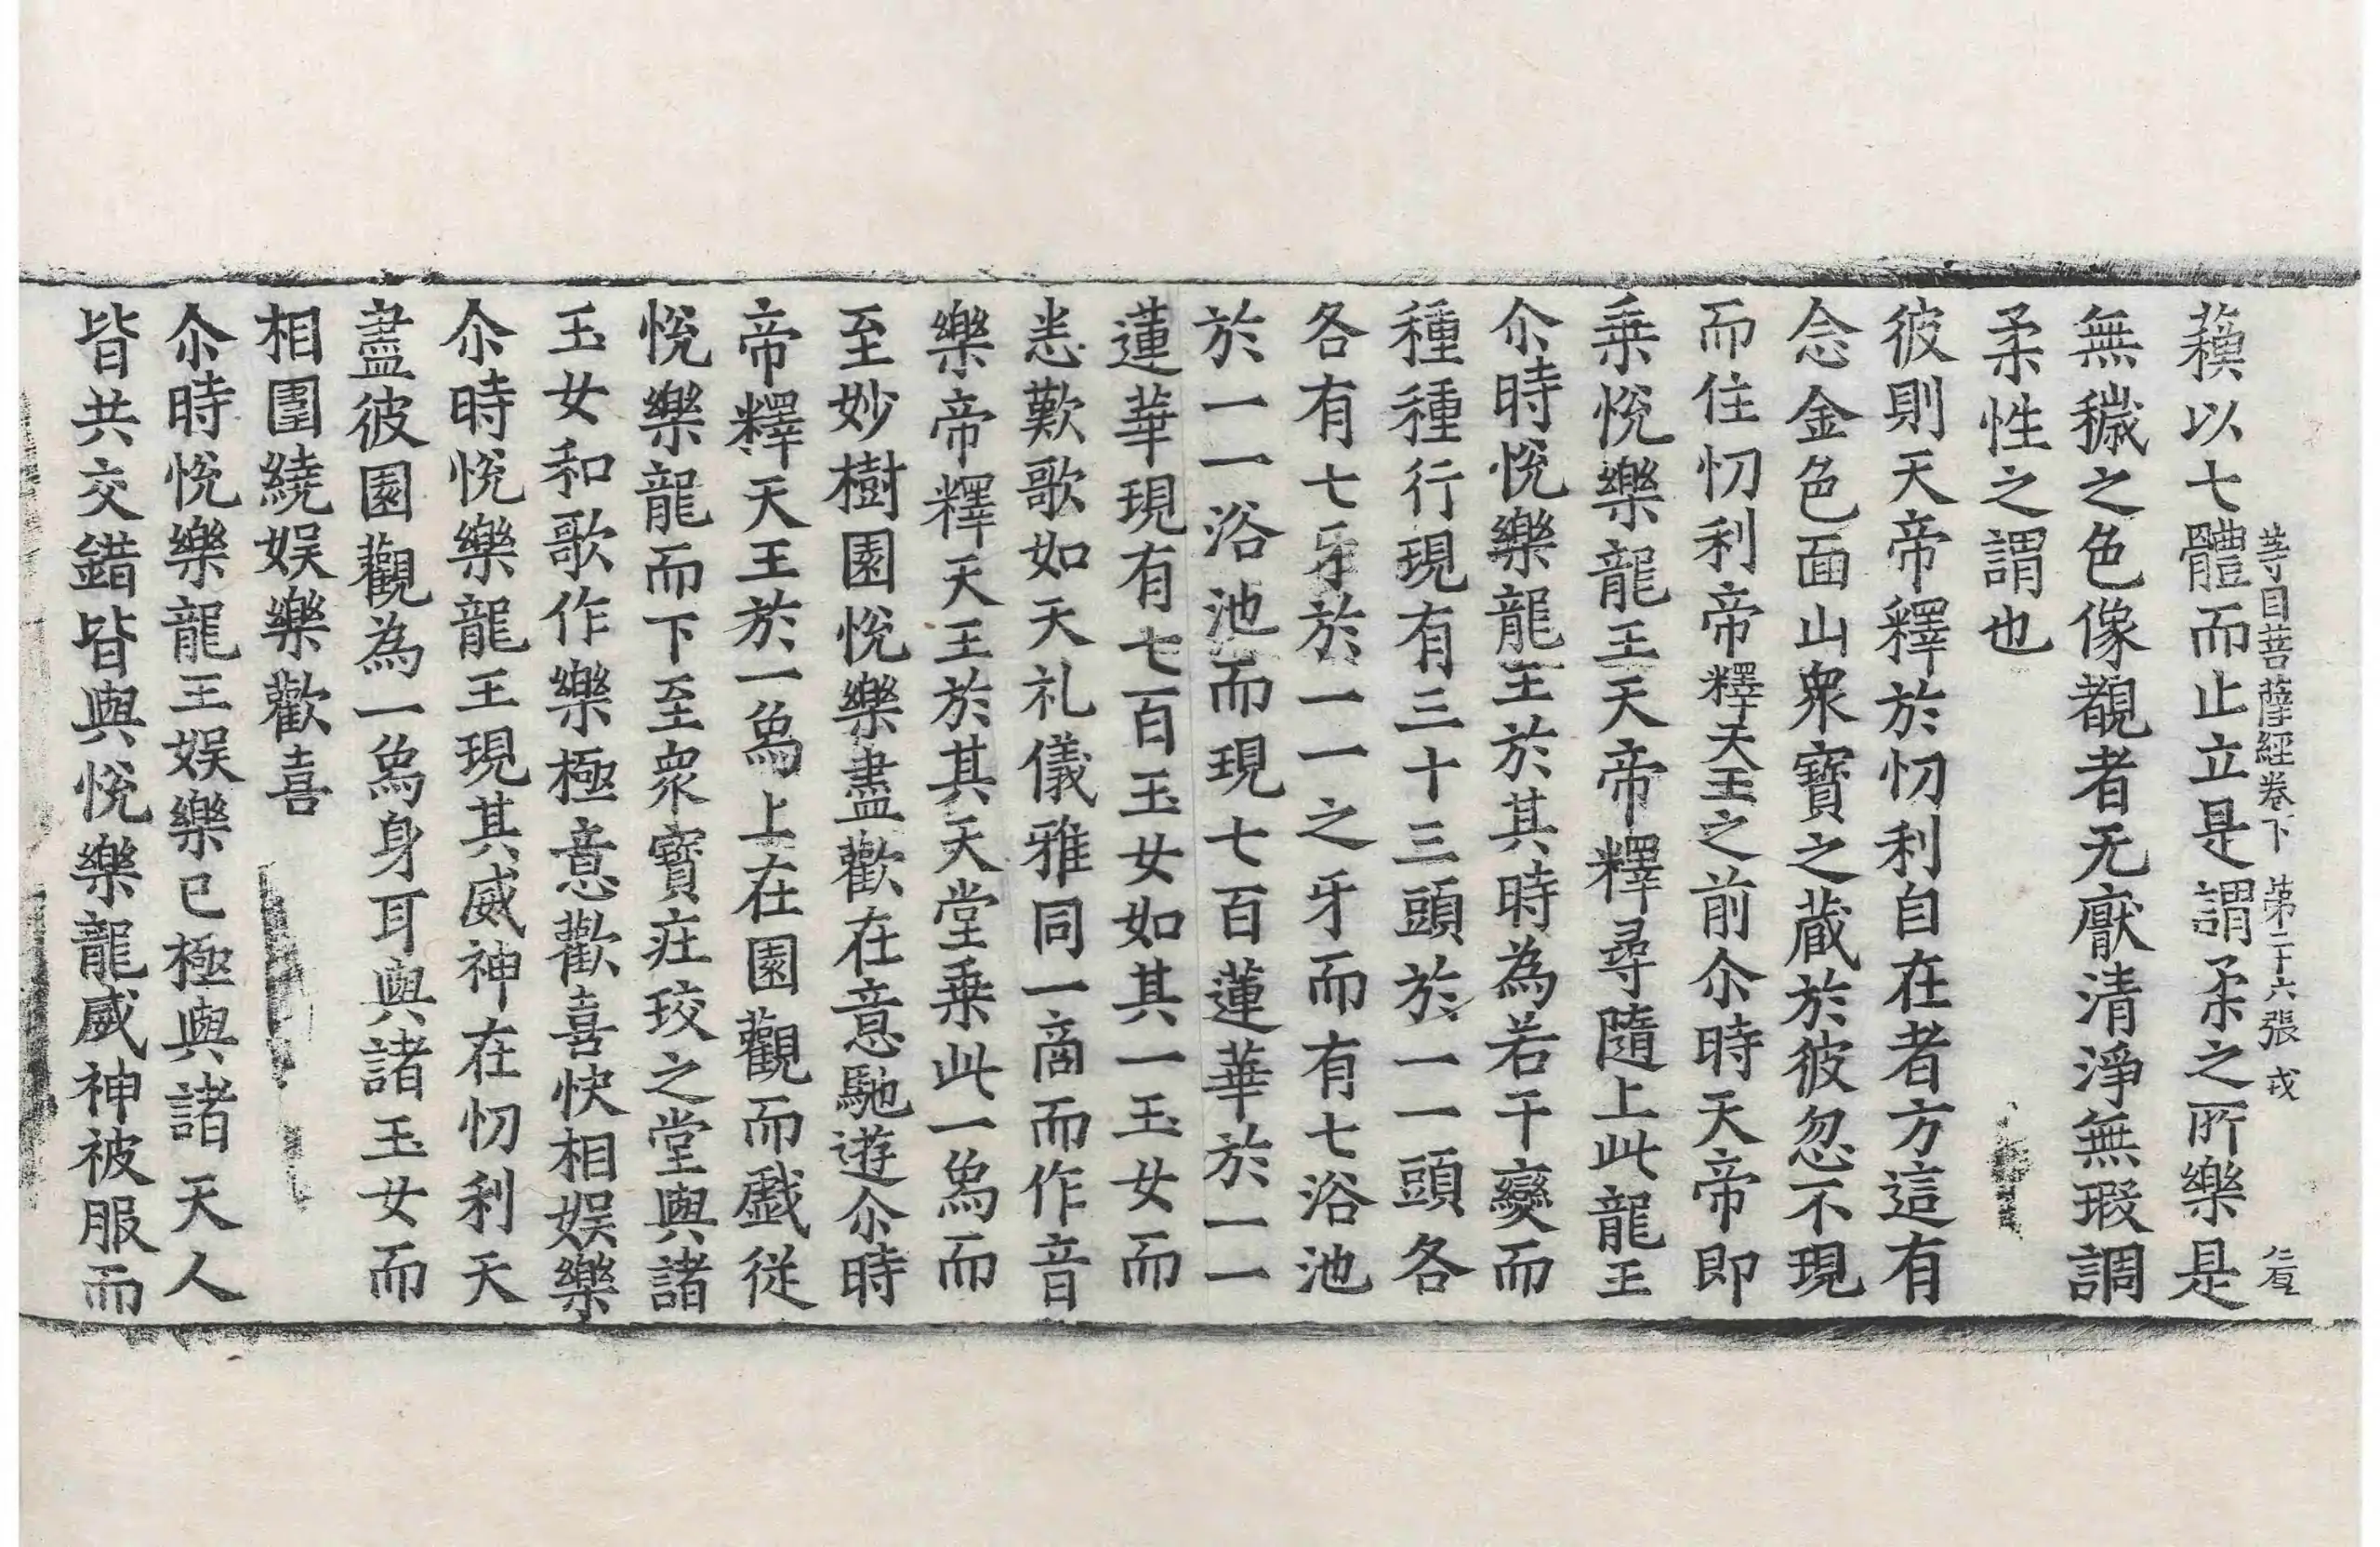 等目菩薩經卷下 第二十六張 戎
𧂐以七體而止立是謂柔之所樂是
無穢之色像覩者无厭清淨無瑕調
柔性之謂也
彼則天帝釋於忉利自在者方這有
念金色面山衆寶之蔵於彼忽不現
而住忉利帝釋天王之前尒時天帝即
乗悅樂龍王天帝釋尋隨上此龍王
尒時悅樂龍王於其時為若干變而
種種行現有三十三頭於一一頭各
各有七牙於一一之牙而有七浴池
於一一浴池而現七百蓮華於一一
蓮華現有七百玉女如其一玉女而
恚歎歌如天礼儀雅同一啇而作音
樂帝釋天王於其天堂乗此一爲而
至妙樹園悅樂盡歡在意馳遊尒時
帝釋天王於一爲上在園觀而戲従
悅樂龍而下至衆寶㽵珓之堂與諸
玉女和歌作樂極意歡喜快相娱樂
尒時悅樂龍王現其威神在忉利天
盡彼園觀為一爲身耳與諸玉女而
相圍繞娱樂歡喜
尒時悅樂龍王娱樂已極與諸天人
皆共交錯皆與悅樂龍威神被服而